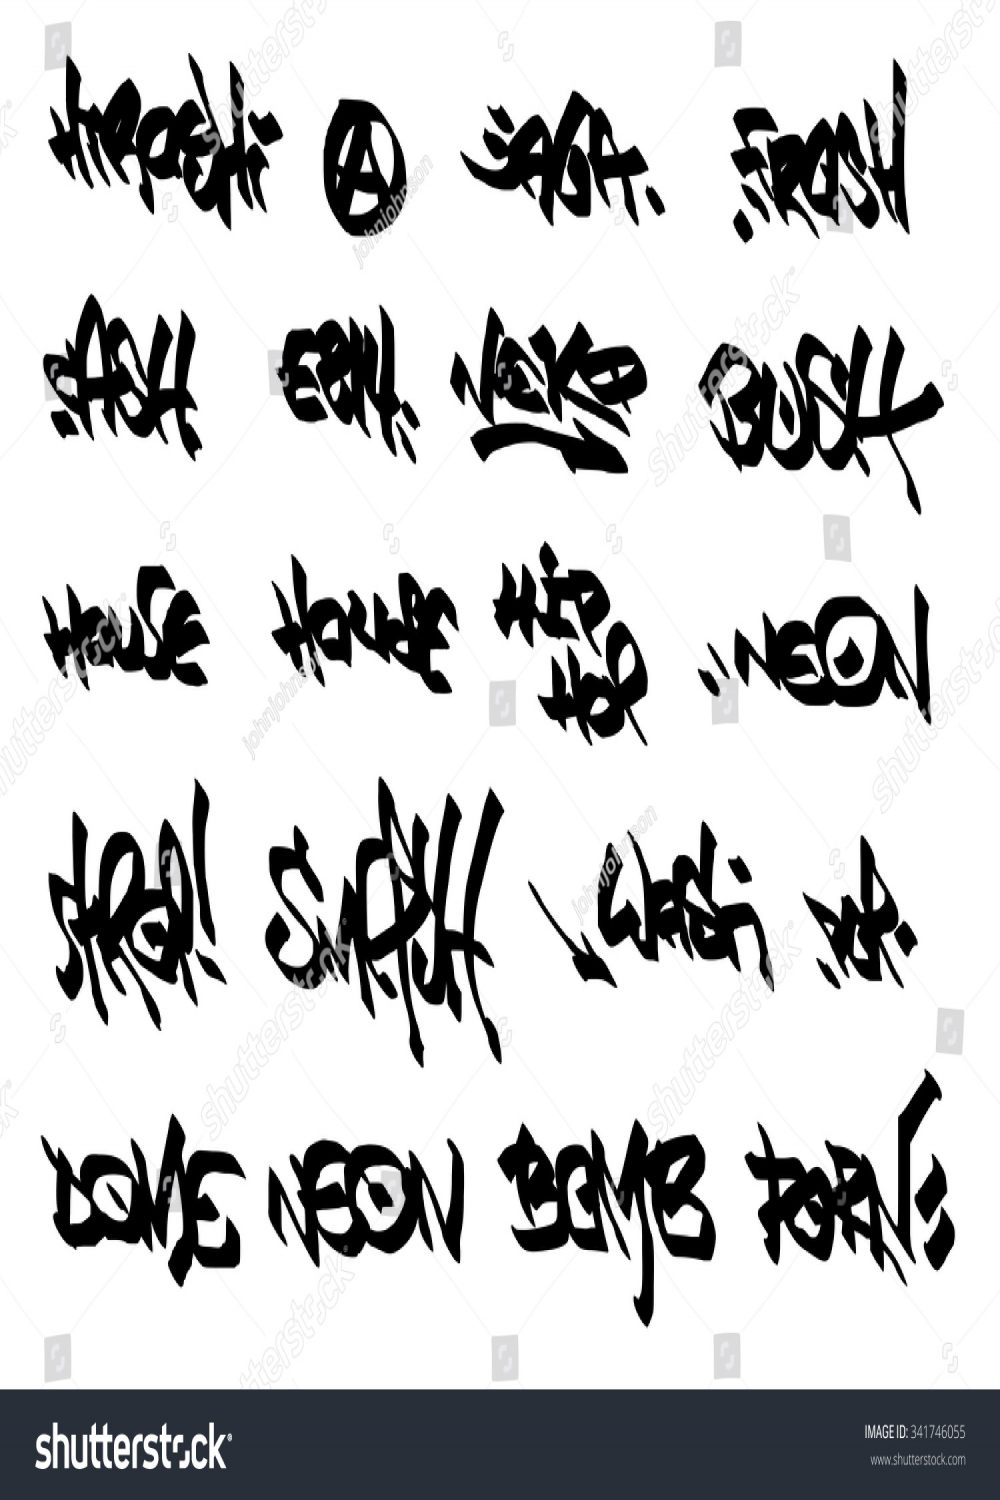 SAGA.
FRESH
SASH
NEKO
BUSH
HOUSE
HOUSE
HIP
HOP
NEON
WASH
POP.
DOME
NEON
BOMB
PORN
johnjohnson
johnjohnson
johnjohnson
shutterstock
IMAGE ID: 341746055
www.shutterstock.com